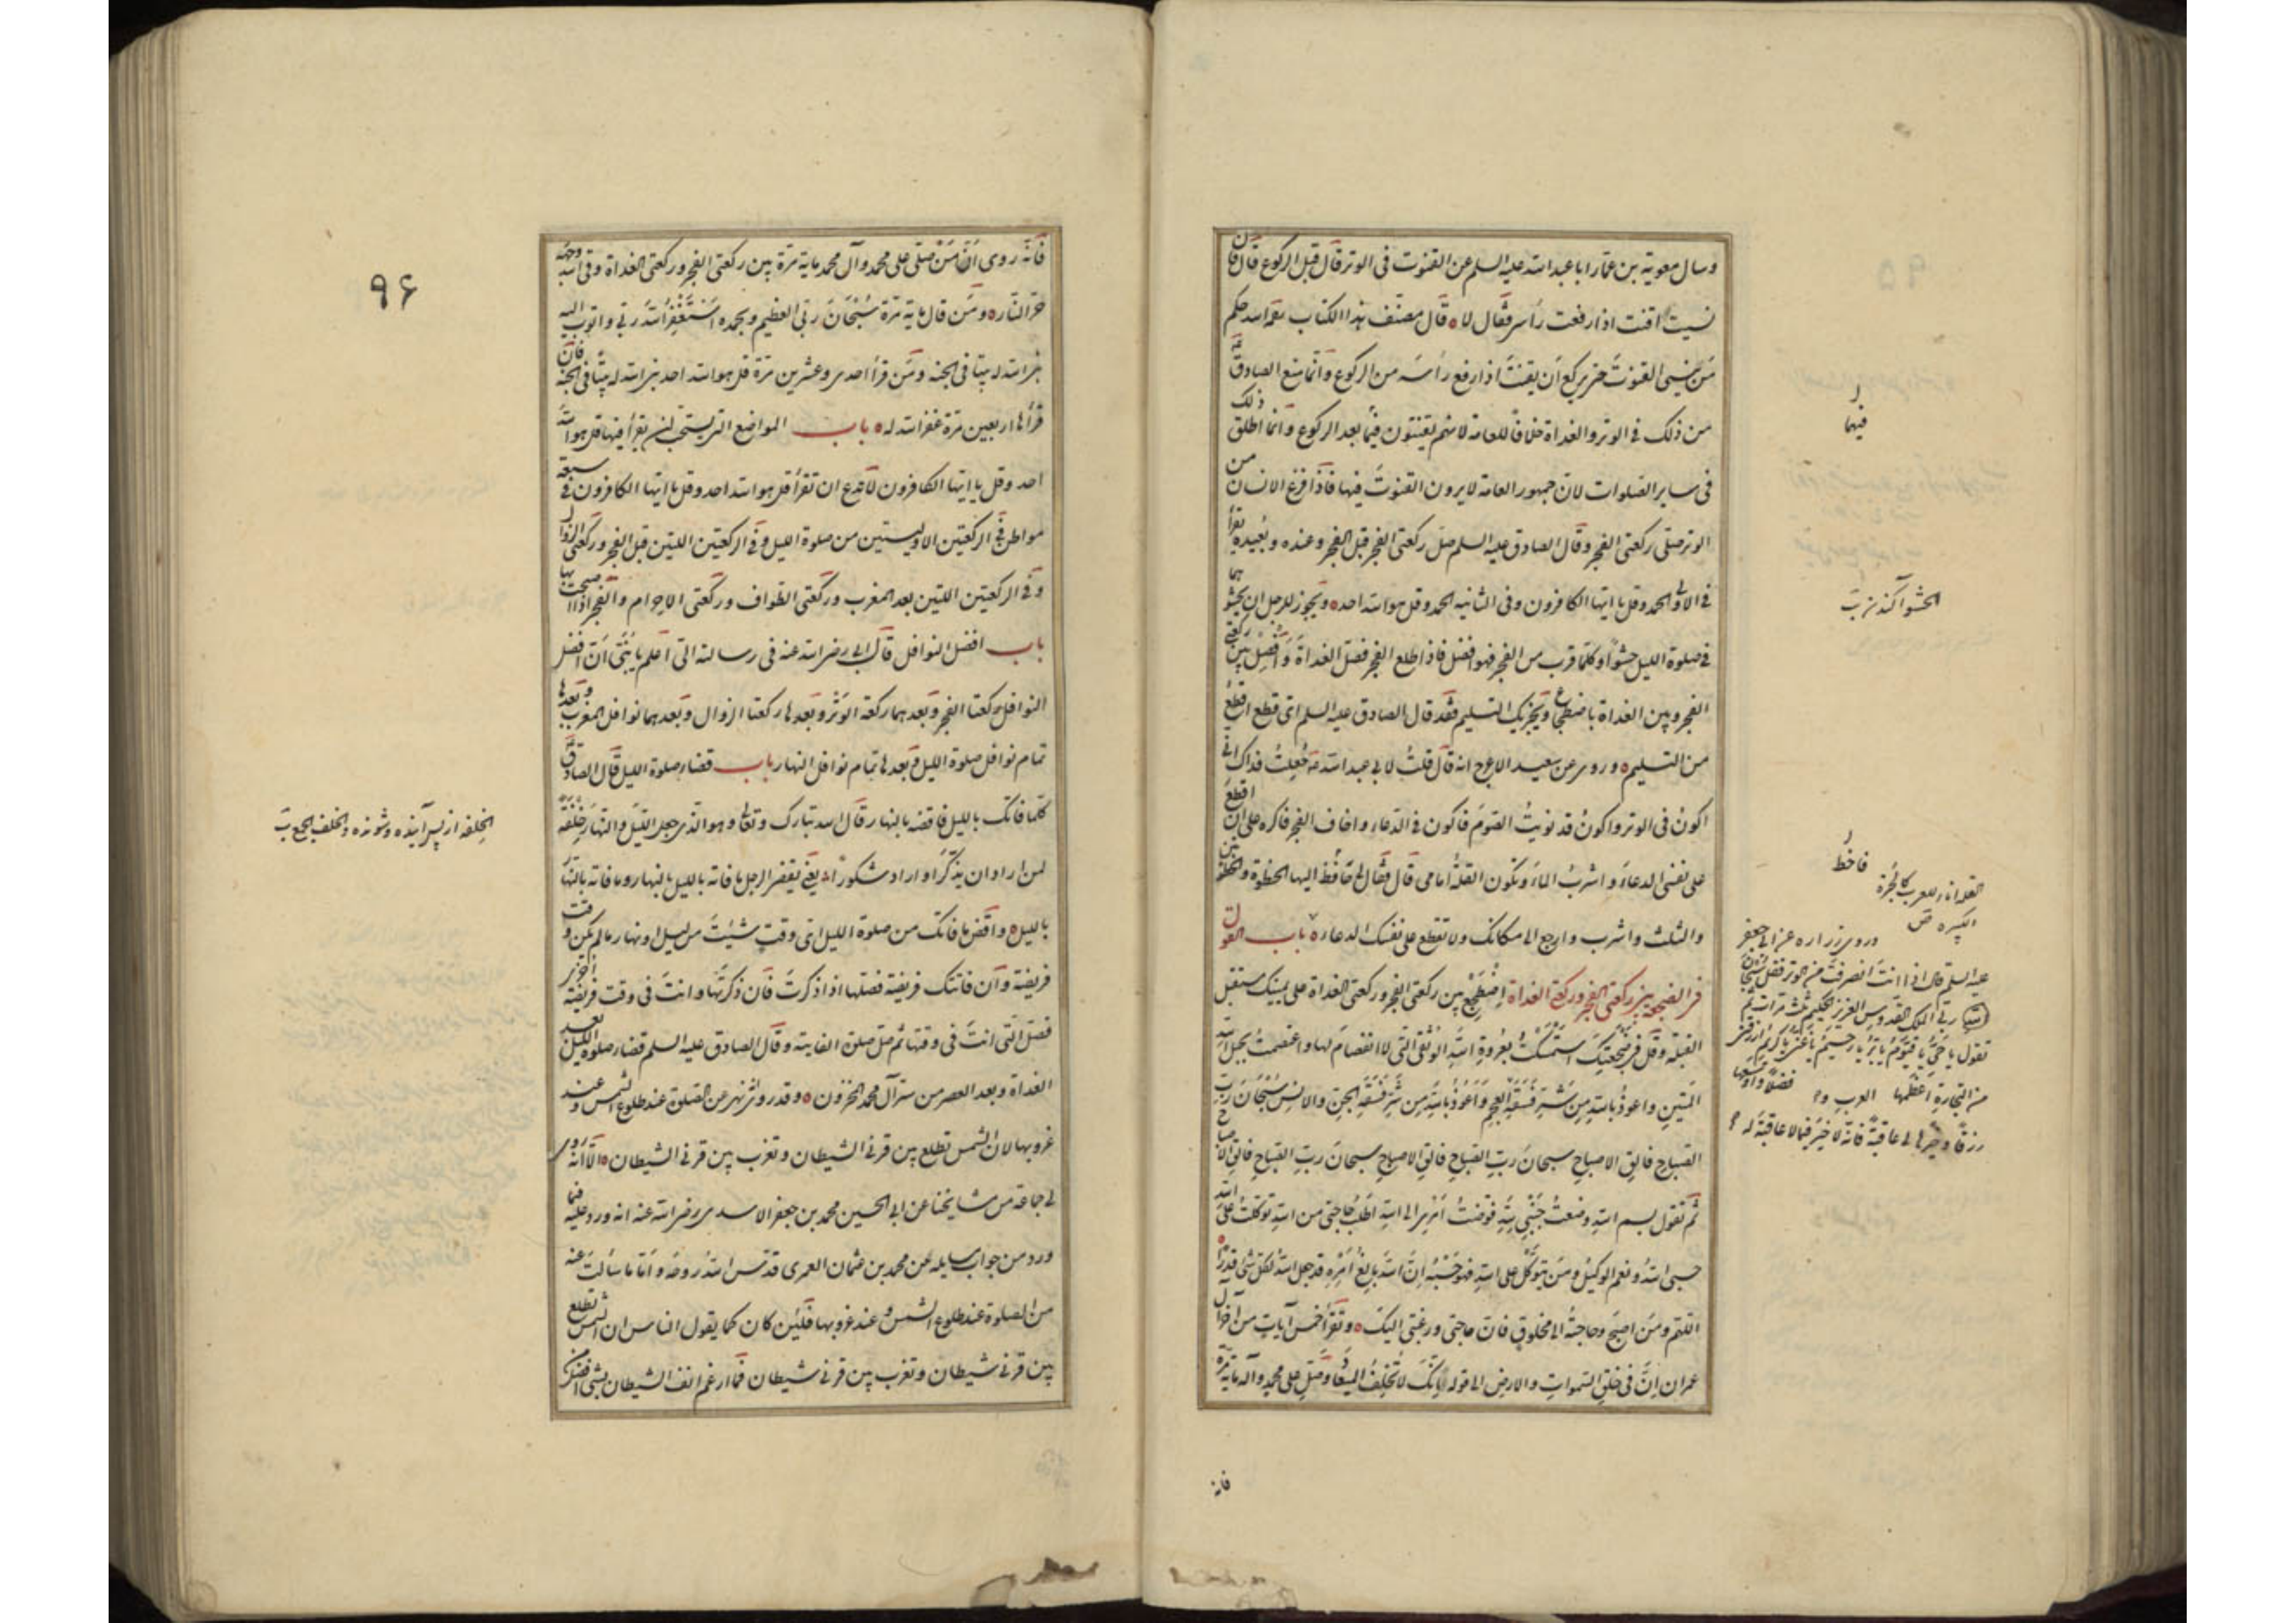 وسال معوية بن عمّار ابا عبد الله عليه السلم عن القنوت في الوتر قال قبل الركوع قال فان
نسيت اقنت اذا رفعت رأسى فقال لا ه قال مصنف هذا الكتاب حكم
من ينسى القنوت حتى يركع أن يقنت اذا رفع رأسه من الركوع وانما منع الصادق
من ذلك في الوتر والغداة خلافا للعامة لانهم يقنتون فيها بعد الركوع وانما اطلق ذلك
في ساير الصلوات لان جمهور العامة لا يرون القنوت فيها فاذا فرغ الانسان من
الوتر صلى ركعتى الفجر وقال الصادق عليه السلم صل ركعتى الفجر قبل الفجر وعنده وبعيده تقرأ
في الاولى الحمد وقل يا ايها الكافرون وفي الثانيه الحمد وقل هو الله احد ه ويجوز للرجل ان يحشوهما
في صلوة الليل حشوا وكلما قرب من الفجر فهو افضل فاذا طلع الفجر فصل الغداة وافصل بين ركعتى
الفجر وبين الغداة باضطجاع ويجزيك التسليم فقد قال الصادق عليه السلم اى قطع اقطع
من التسليم ه وروى عن سعيد الاعرج انه قال قلت لابى عبد الله جعلت فداك انى
اكون في الوتر واكون قد نويت الصوم فاكون في الدعاء واخاف الفجر فاكره ان اقطع
على نفسى الدعاء واشرب الماء وتكون القلة امامى قال فقال لى فاخط اليها الخطوة والخطوتين
والثلث واشرب وارجع الى مكانك ولا تقطع على نفسك الدعاء ه باب القول
في الضجعة بين ركعتى الفجر وركعتى الغداة اضطجع بين ركعتى الفجر وركعتى الغداة على يمينك مستقبل
القبلة وقل في ضجعتك استمسكت بعروة الله الوثقى التى لا انفصام لها واعتصمت بحبل الله
المتين واعوذ بالله من شر فسقة العجم واعوذ بالله من شر فسقة الجن والانس سبحان رب
الصباح فالق الاصباح سبحان رب الصباح فالق الاصباح سبحان رب الصباح فالق الاصباح
ثم تقول بسم الله وضعت جنبى لله فوضت امرى الى الله اطلب حاجتى من الله توكلت على الله
حسبى الله ونعم الوكيل ومن يتوكل على الله فهو حسبه ان الله بالغ امره قد جعل الله لكل شئ قدرا ه
اللهم ومن اصبح وحاجته الى مخلوق فان حاجتى ورغبتى اليك ه وتقرأ خمس آيات من آخر آل
عمران ان في خلق السموات والارض الى قوله انك لا تخلف الميعاد وصل على محمد وآله مائة مرة
فانه
فيها
الحشو آكندن
فاخط
القلة اناء للعرب كالجرة
الكبيرة ص
وروى زراره عن ابى جعفر
عليه السلم قال اذا انت انصرفت من الوتر فقل سبحان
ربى الملك القدوس العزيز الحكيم ثلث مرات ثم
تقول يا حى يا قيوم يا بر يا رحيم يا غنى يا كريم ارزقنى
من التجارة اعظمها فضلا واوسعها
رزقا وخيرها لى عاقبة فانه لا خير فيما لا عاقبة له
٩۶
فانه روى أن من صلى على محمد وآل محمد ماية مرة بين ركعتى الفجر وركعتى الغداة وقى الله وجهه
حر النار ه ومن قال ماية مرة سبحان ربى العظيم وبحمده استغفر الله ربى واتوب اليه
بنى الله له بيتا في الجنة ومن قرأ احدى وعشرين مرة قل هو الله احد بنى الله له بيتا في الجنة فان
قرأها اربعين مرة غفر الله له ه باب المواضع التى يستحب ان يقرأ فيها قل هو الله
احد وقل يا ايها الكافرون لا تدع ان تقرأ قل هو الله احد وقل يا ايها الكافرون في سبعة
مواطن في الركعتين الاوليتين من صلوة الليل وفي الركعتين اللتين قبل الفجر وركعتى الزوال
وفي الركعتين اللتين بعد المغرب وركعتى الطواف وركعتى الاحرام والفجر اذا اصبحت بها
باب افضل النوافل قال ابى رضى الله عنه في رسالته الى اعلم يا بنى ان افضل
النوافل ركعتا الفجر وبعدهما ركعة الوتر وبعدها ركعتا الزوال وبعدهما نوافل المغرب وبعدها
تمام نوافل صلوة الليل وبعدها تمام نوافل النهار باب قضاء صلوة الليل قال الصادق
كلما فاتك بالليل فاقضه بالنهار قال الله تبارك وتعالى وهو الذى جعل الليل والنهار خلفة
لمن اراد ان يذكر او اراد شكورا يعنى يقضى الرجل ما فاته بالليل بالنهار وما فاته بالنهار
بالليل ه واقض ما فاتك من صلوة الليل اى وقت شئت من ليل او نهار ما لم يكن وقت
فريضة وان فاتتك فريضة فصلها اذا ذكرت فان ذكرتها وانت في وقت فريضة اخرى
فصل التى انت في وقتها ثم صل صلوة الفايتة وقال الصادق عليه السلم قضاء صلوة الليل بعد
الغداة وبعد العصر من سر آل محمد المخزون ه وقد روى نهى عن الصلوة عند طلوع الشمس وعند
غروبها لان الشمس تطلع بين قرنى الشيطان وتغرب بين قرنى الشيطان ه الا انه روى
لى جماعة من مشايخنا عن ابى الحسين محمد بن جعفر الاسدى رضى الله عنه انه ورد عليه فيما
ورد من جواب مسايله عن محمد بن عثمان العمرى قدس الله روحه واما ما سألت عنه
من الصلوة عند طلوع الشمس وعند غروبها فلئن كان كما يقول الناس ان الشمس تطلع
بين قرنى شيطان وتغرب بين قرنى شيطان فما ارغم انف الشيطان بشئ افضل من
الخلفه از پس آينده وشونده والخلف الجمع